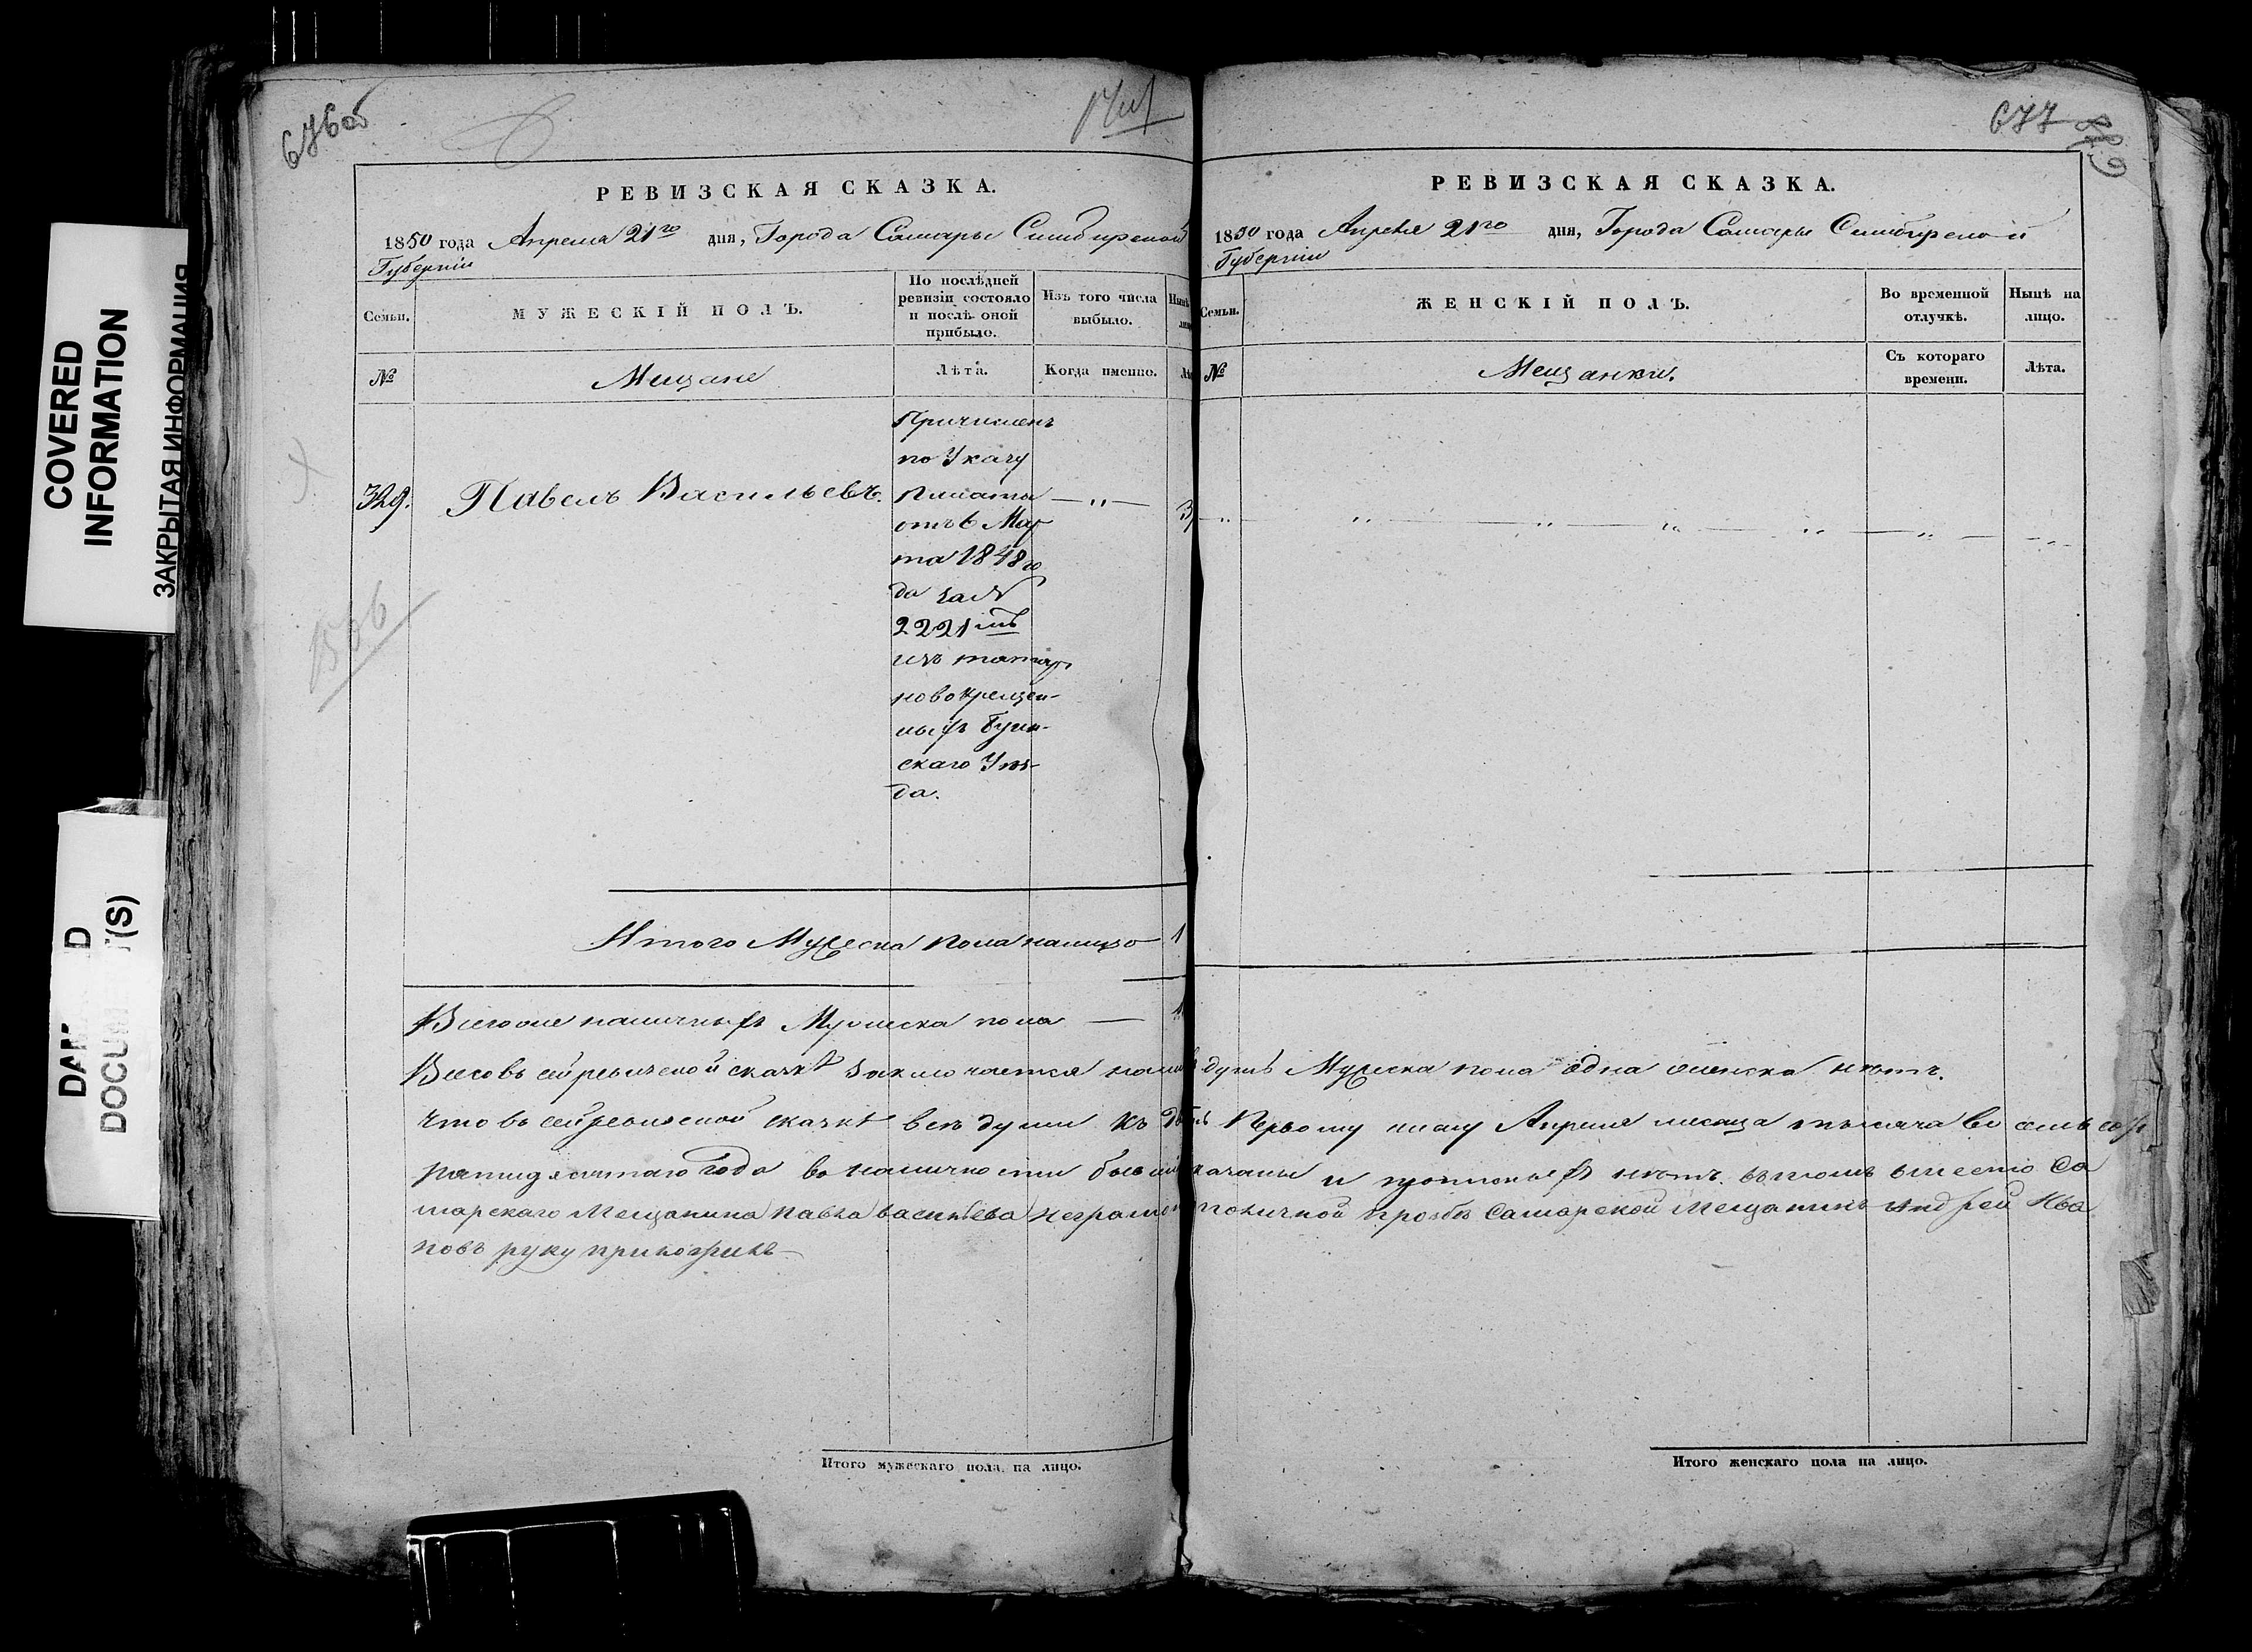 676об
677
РЕВИЗСКАЯ СКАЗКА.
1850 года Апреля 21го дня, Города Самары Симбирской
Губернии
Семьи.
МУЖЕСКІЙ ПОЛЪ.
По послѣдней
ревизіи состояло
и послѣ оной
прибыло.
Изъ того числа
выбыло.
№
Мещане
Лѣта.
Когда именно.
329. Павелъ Васильевъ.
Причисленъ
по Указу
Палаты
отъ 6 Мар
та 1848 го
да за №
2221мъ
изъ татаръ
новокрещен-
ныхъ Буин-
скаго Уѣз-
да.
Итого Мужеска пола налицо 1
Всего же наличныхъ Мужеска пола — 1
РЕВИЗСКАЯ СКАЗКА.
1850 года Апреля 21го дня, Города Самары Симбирской
Губернии
Семьи.
ЖЕНСКІЙ ПОЛЪ.
Во временной
отлучкѣ.
Нынѣ на
лицо.
№
Мещанки.
Съ котораго
времени.
Лѣта.
Всего въ сей ревизской сказкѣ заключается душъ Мужеска пола одна а женска нѣтъ.
Что въ сей ревизской сказкѣ всѣ души къ Первому числу Апреля месяца тысяча во семь сотъ
пятидесятаго года въ наличности показаны и прописныхъ нѣтъ. въ томъ вместо Са
марскаго Мещанина Павла Васильева по личной прозбе Самарской Мещанинъ Андрей Ива
новъ руку приложилъ
Итого мужескаго пола на лицо.
Итого женскаго пола на лицо.
COVERED
INFORMATION
ЗАКРЫТАЯ ИНФОРМАЦИЯ
1536